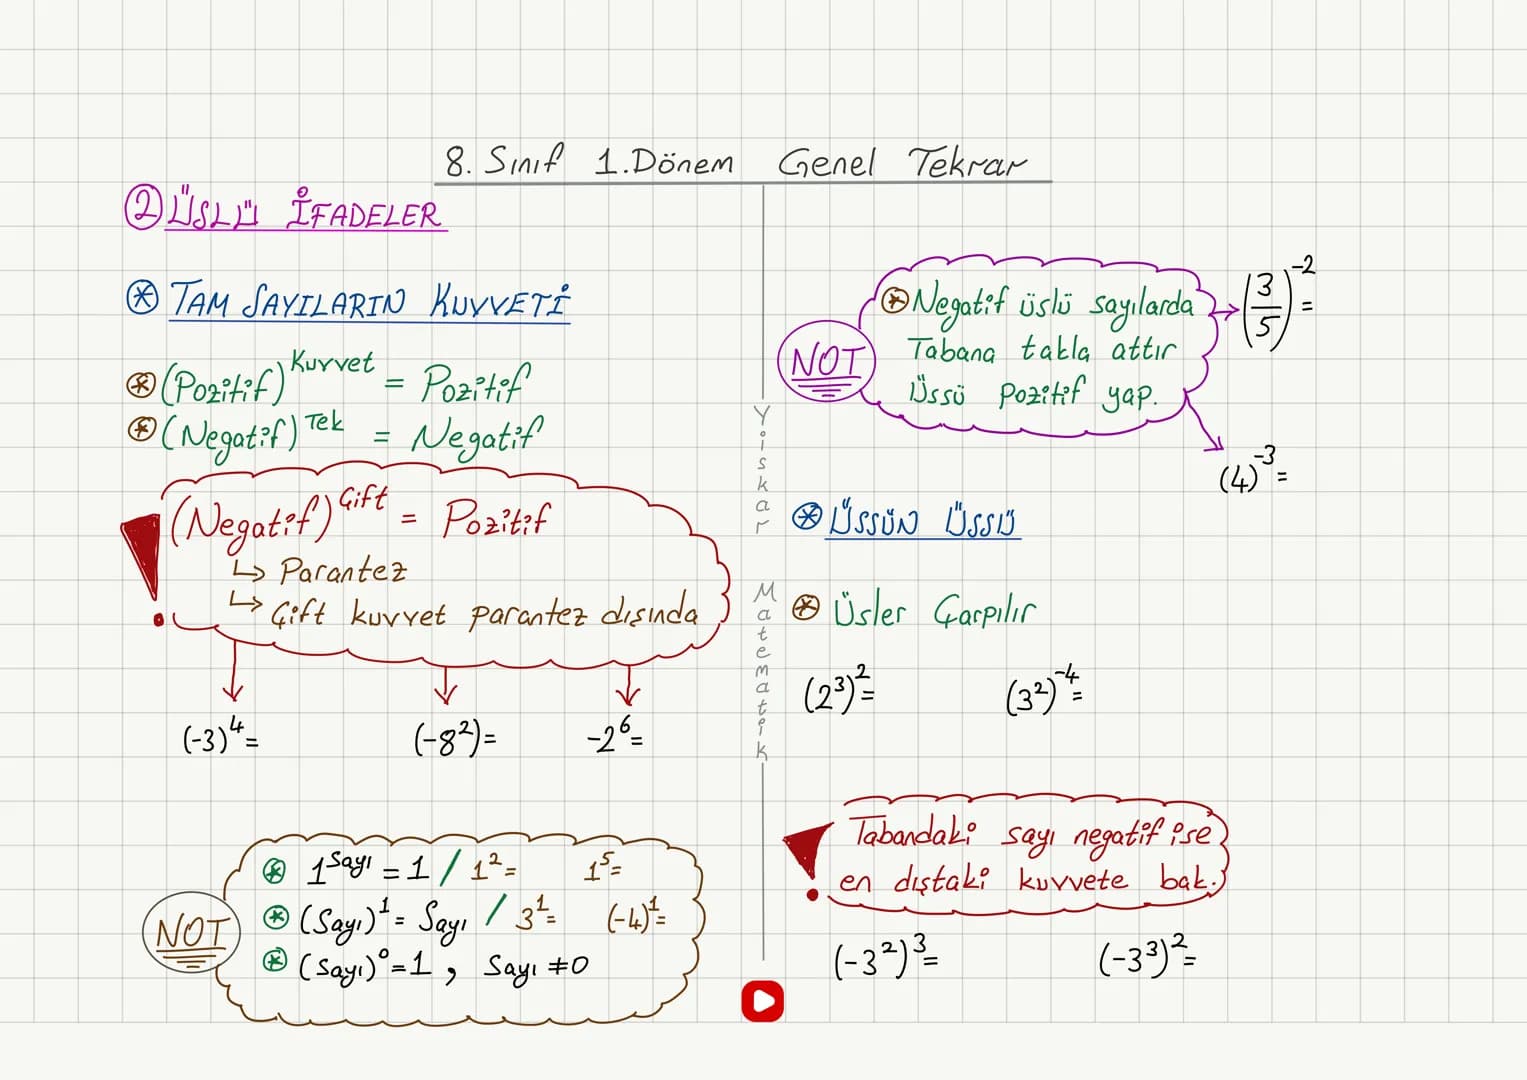 8. Sınıf 1.Dönem Genel Tekrar
② ÜSLÜ İFADELER
⊛ TAM SAYILARIN KUVVETİ
⊛ (Pozitif)^Kuvvet = Pozitif
⊛ (Negatif)^Tek = Negatif
! (Negatif)^Çift = Pozitif
↳ Parantez
↳ Çift kuvvet parantez dışında
(-3)⁴= (-8²)= -2⁶=
NOT
⊛ 1^Sayı = 1 / 1²= 1⁵=
⊛ (Sayı)¹ = Sayı / 3¹= (-4)¹=
⊛ (Sayı)⁰=1 , Sayı ≠0
Yiskar Matematik
NOT
⊛ Negatif üslü sayılarda
Tabana takla attır
Üssü Pozitif yap.
(3/5)⁻²=
(4)⁻³=
⊛ ÜSSÜN ÜSSÜ
⊛ Üsler Çarpılır
(2³)²= (3²)⁻⁴=
! Tabandaki sayı negatif ise
en dıştaki kuvvete bak.
(-3²)³= (-3³)²=